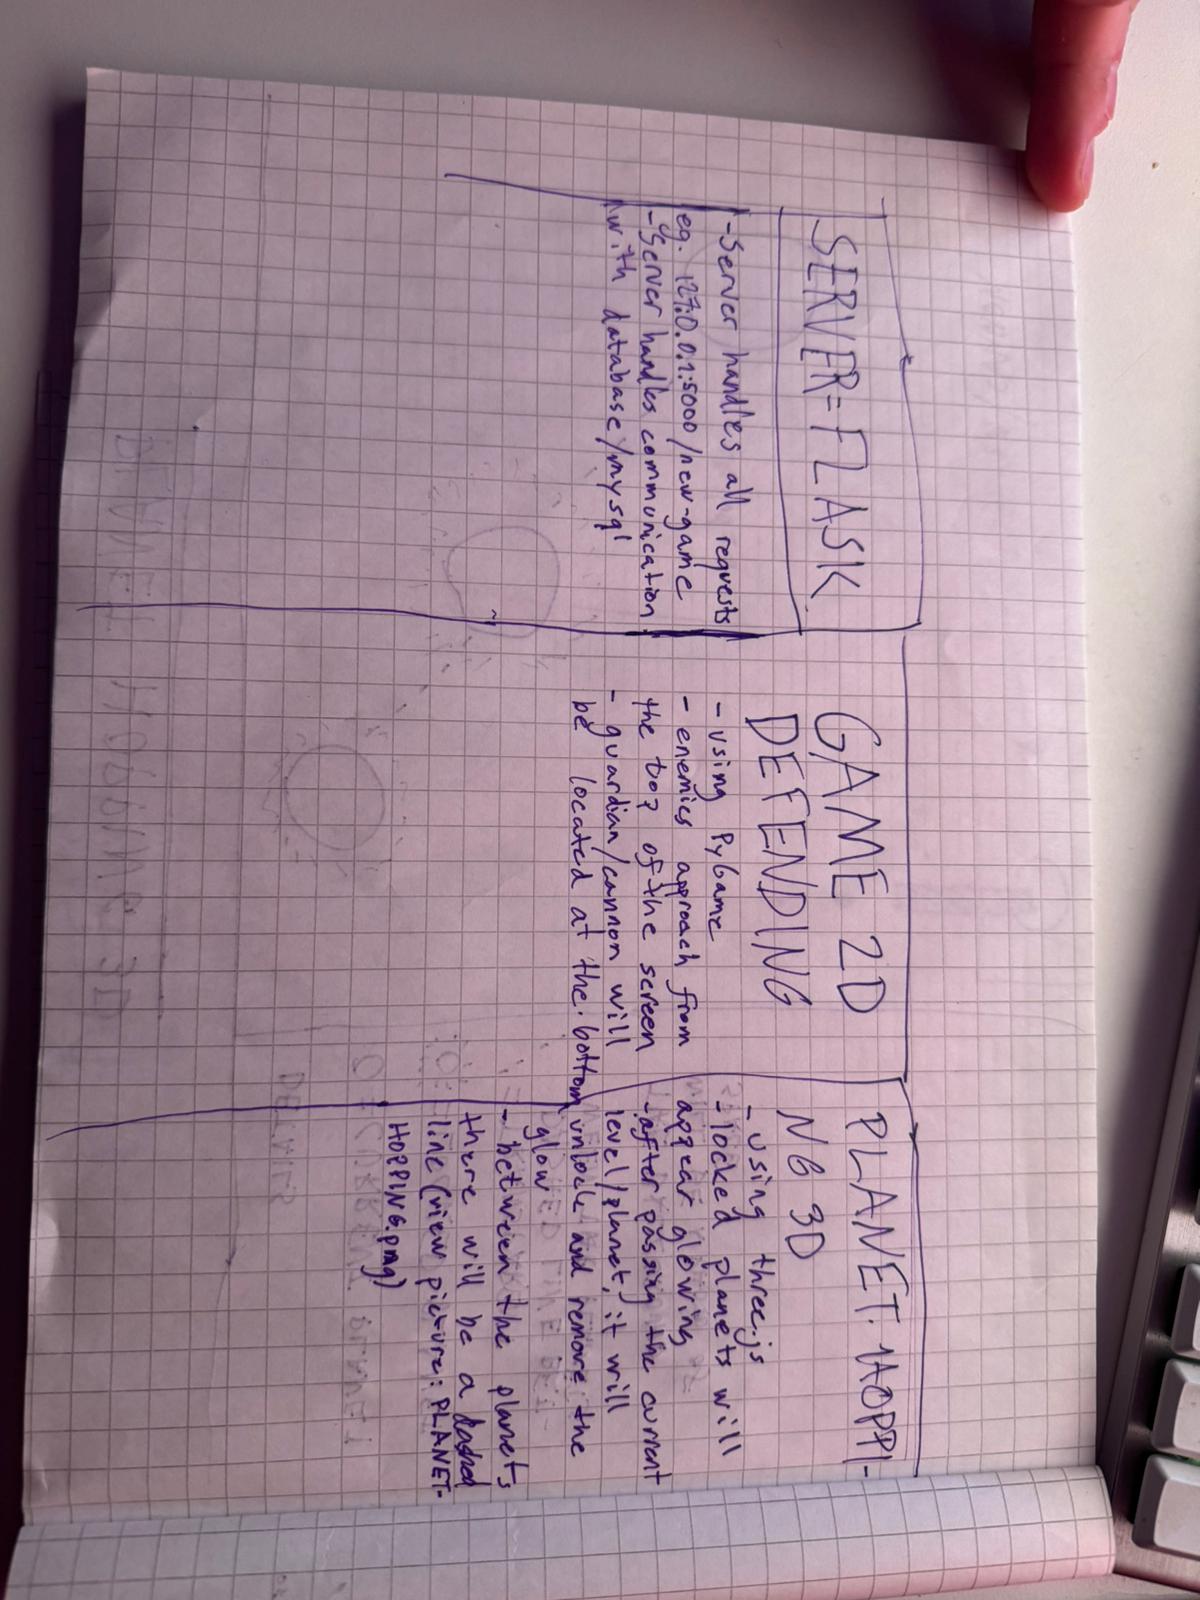 SERVER=FLASK
-Server handles all requests
eg. 127.0.0.1:5000/new-game
-Server handles communication
with database/mysql
GAME 2D
DEFENDING
- using PyGame
- enemies approach from
the top of the screen
- guardian/cannon will
be located at the bottom
PLANET HOPPI-
NG 3D
- using three.js
- locked planets will
appear glowing
-after passing the current
level/planet, it will
unlock and remove the
glow
- between the planets
there will be a dashed
line (view picture: PLANET-
HOPPING.png)